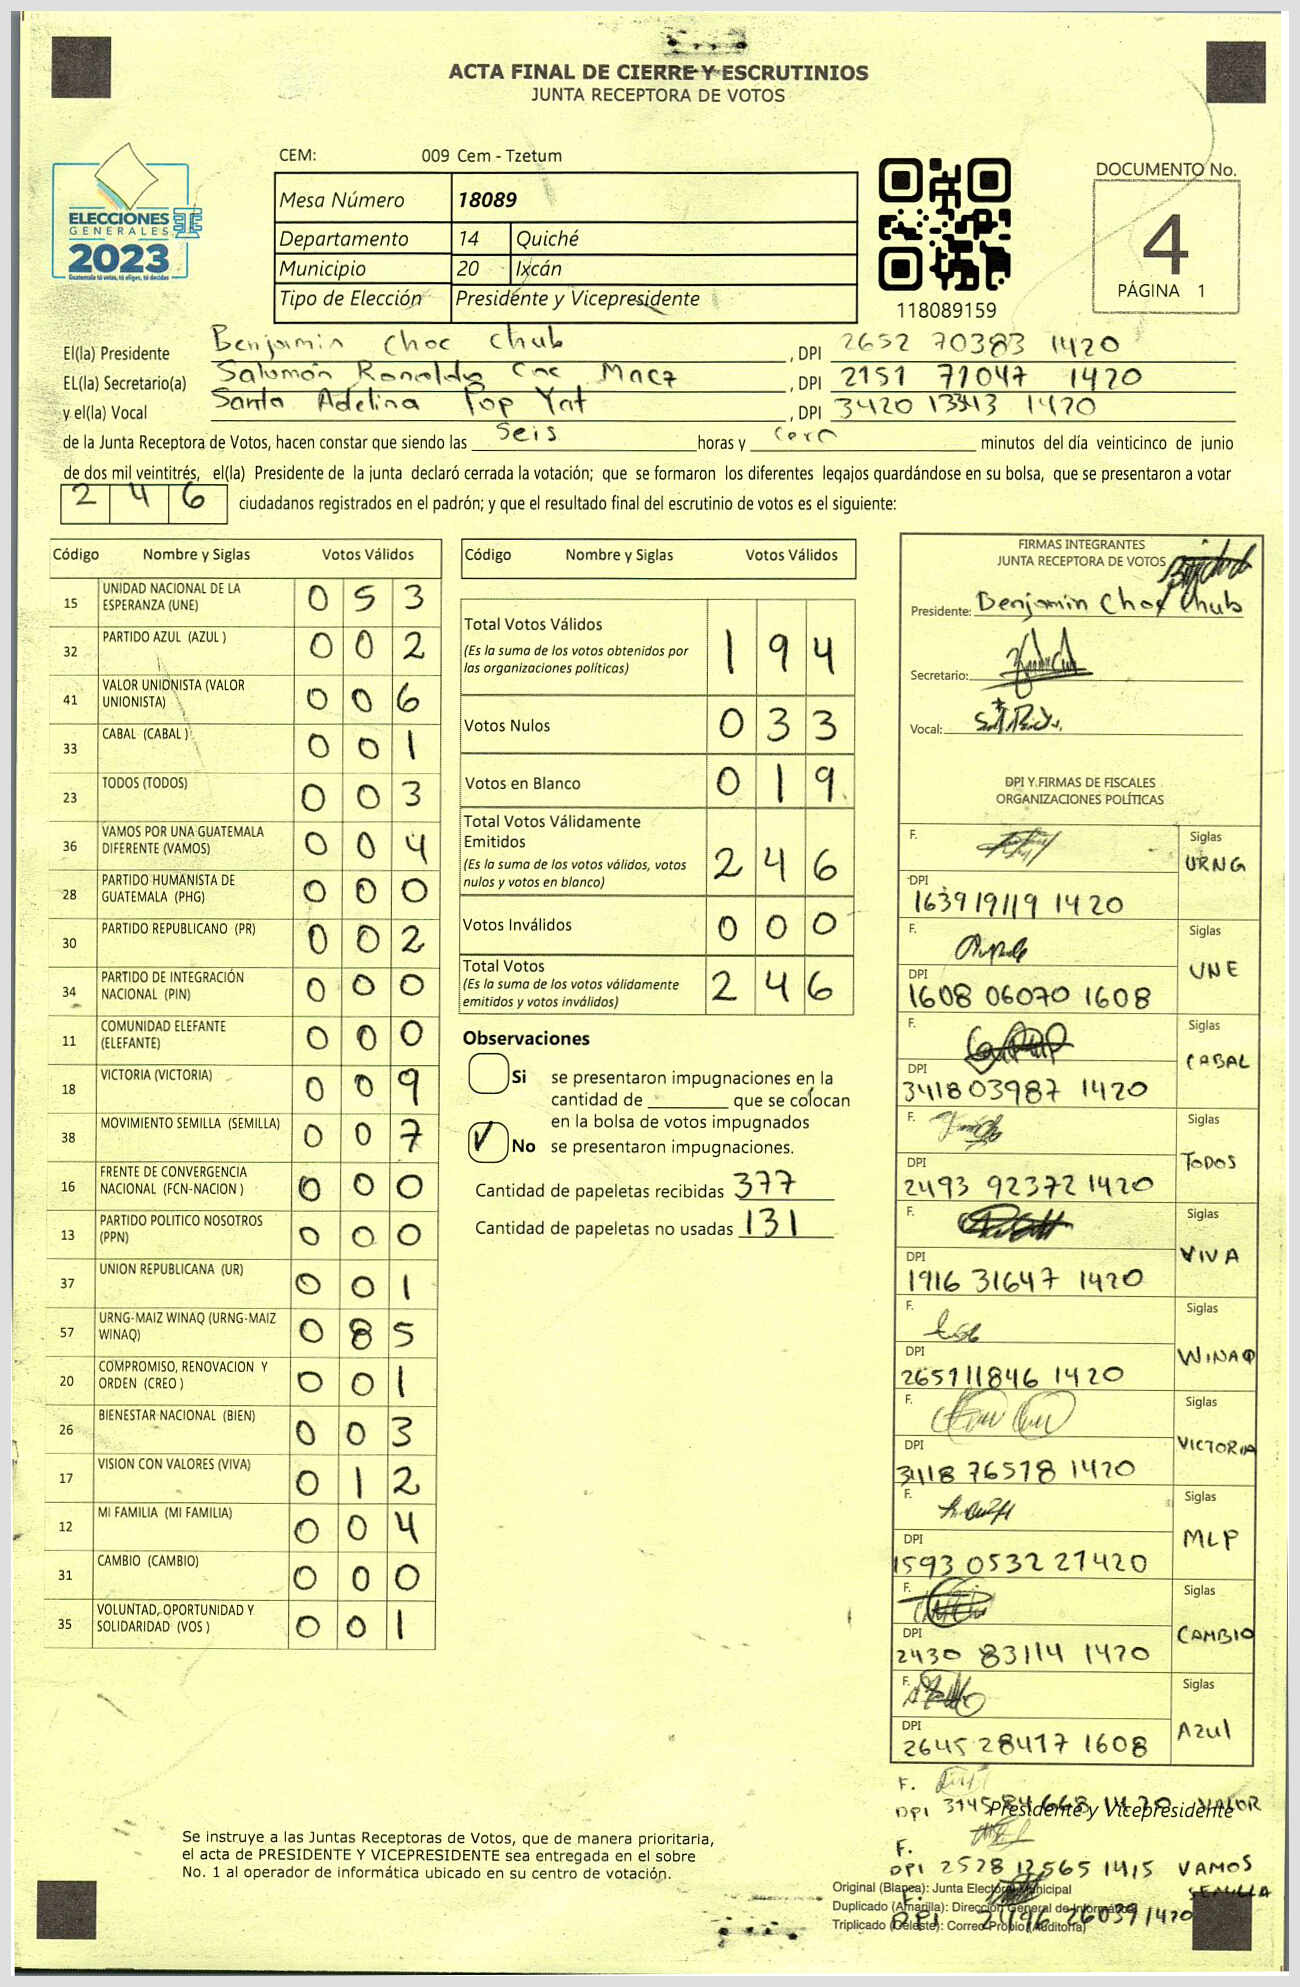 ACTA FINAL DE CIERRE Y ESCRUTINIOS
JUNTA RECEPTORA DE VOTOS
ELECCIONES
GENERALES
2023
Guatemala tú votas, tú eliges, tú decides
CEM: 009 Cem - Tzetum
Mesa Número 18089
Departamento 14 Quiché
Municipio 20 Ixcán
Tipo de Elección Presidente y Vicepresidente
118089159
DOCUMENTO No.
4
PÁGINA 1
El(la) Presidente Benjamin Choc Chub, DPI 2652 70383 1420
EL(la) Secretario(a) Salomón Ronaldo Macz, DPI 2151 71047 1420
y el(la) Vocal Santa Adelina Pop Yat, DPI 3420 1420
de la Junta Receptora de Votos, hacen constar que siendo las seis horas y cero minutos del día veinticinco de junio
de dos mil veintitrés, el(la) Presidente de la junta declaró cerrada la votación; que se formaron los diferentes legajos quardándose en su bolsa, que se presentaron a votar
246 ciudadanos registrados en el padrón; y que el resultado final del escrutinio de votos es el siguiente:
Código Nombre y Siglas Votos Válidos
15 UNIDAD NACIONAL DE LA ESPERANZA (UNE) 0 5 3
32 PARTIDO AZUL (AZUL ) 0 0 2
41 VALOR UNIONISTA (VALOR UNIONISTA) 0 0 6
33 CABAL (CABAL ) 0 0 1
23 TODOS (TODOS) 0 0 3
36 VAMOS POR UNA GUATEMALA DIFERENTE (VAMOS) 0 0 4
28 PARTIDO HUMANISTA DE GUATEMALA (PHG) 0 0 0
30 PARTIDO REPUBLICANO (PR) 0 0 2
34 PARTIDO DE INTEGRACIÓN NACIONAL (PIN) 0 0 0
11 COMUNIDAD ELEFANTE (ELEFANTE) 0 0 0
18 VICTORIA (VICTORIA) 0 0 9
38 MOVIMIENTO SEMILLA (SEMILLA) 0 0 7
16 FRENTE DE CONVERGENCIA NACIONAL (FCN-NACION ) 0 0 0
13 PARTIDO POLITICO NOSOTROS (PPN) 0 0 0
37 UNION REPUBLICANA (UR) 0 0 1
57 URNG-MAIZ WINAQ (URNG-MAIZ WINAQ) 0 8 5
20 COMPROMISO, RENOVACION Y ORDEN (CREO ) 0 0 1
26 BIENESTAR NACIONAL (BIEN) 0 0 3
17 VISION CON VALORES (VIVA) 0 1 2
12 MI FAMILIA (MI FAMILIA) 0 0 4
31 CAMBIO (CAMBIO) 0 0 0
35 VOLUNTAD, OPORTUNIDAD Y SOLIDARIDAD (VOS ) 0 0 1
Código Nombre y Siglas Votos Válidos
Total Votos Válidos 1 9 4
(Es la suma de los votos obtenidos por
las organizaciones políticas)
Votos Nulos 0 3 3
Votos en Blanco 0 1 9
Total Votos Válidamente
Emitidos 2 4 6
(Es la suma de los votos válidos, votos
nulos y votos en blanco)
Votos Inválidos 0 0 0
Total Votos 2 4 6
(Es la suma de los votos válidamente
emitidos y votos inválidos)
Observaciones
Si se presentaron impugnaciones en la
cantidad de ________ que se colocan
en la bolsa de votos impugnados
No se presentaron impugnaciones.
Cantidad de papeletas recibidas 377
Cantidad de papeletas no usadas 131
FIRMAS INTEGRANTES
JUNTA RECEPTORA DE VOTOS
Presidente: Benjamin Choc Chub
Secretario:
Vocal:
DPI Y FIRMAS DE FISCALES
ORGANIZACIONES POLÍTICAS
F. Siglas URNG
DPI 1639 19119 1420
F. Siglas UNE
DPI 1608 06070 1608
F. Siglas CABAL
DPI 3418 03987 1420
F. Siglas TODOS
DPI 2493 92372 1420
F. Siglas VIVA
DPI 1916 31647 1420
F. Siglas WINAQ
DPI 2657 11846 1420
F. Siglas VICTORIA
DPI 3418 76578 1420
F. Siglas MLP
DPI 1593 0532 21420
F. Siglas CAMBIO
DPI 2430 83114 1420
F. Siglas Azul
DPI 2645 28417 1608
F.
DPI 1420 VALOR
Presidente y Vicepresidente
F.
DPI 2528 12565 1415 VAMOS
F. SEMILLA
DPI 26039 1420
Se instruye a las Juntas Receptoras de Votos, que de manera prioritaria,
el acta de PRESIDENTE Y VICEPRESIDENTE sea entregada en el sobre
No. 1 al operador de informática ubicado en su centro de votación.
Original (Blanca): Junta Electoral Municipal
Duplicado (Amarilla): Dirección General de Informática
Triplicado (Celeste): Correo Propio (Auditoría)